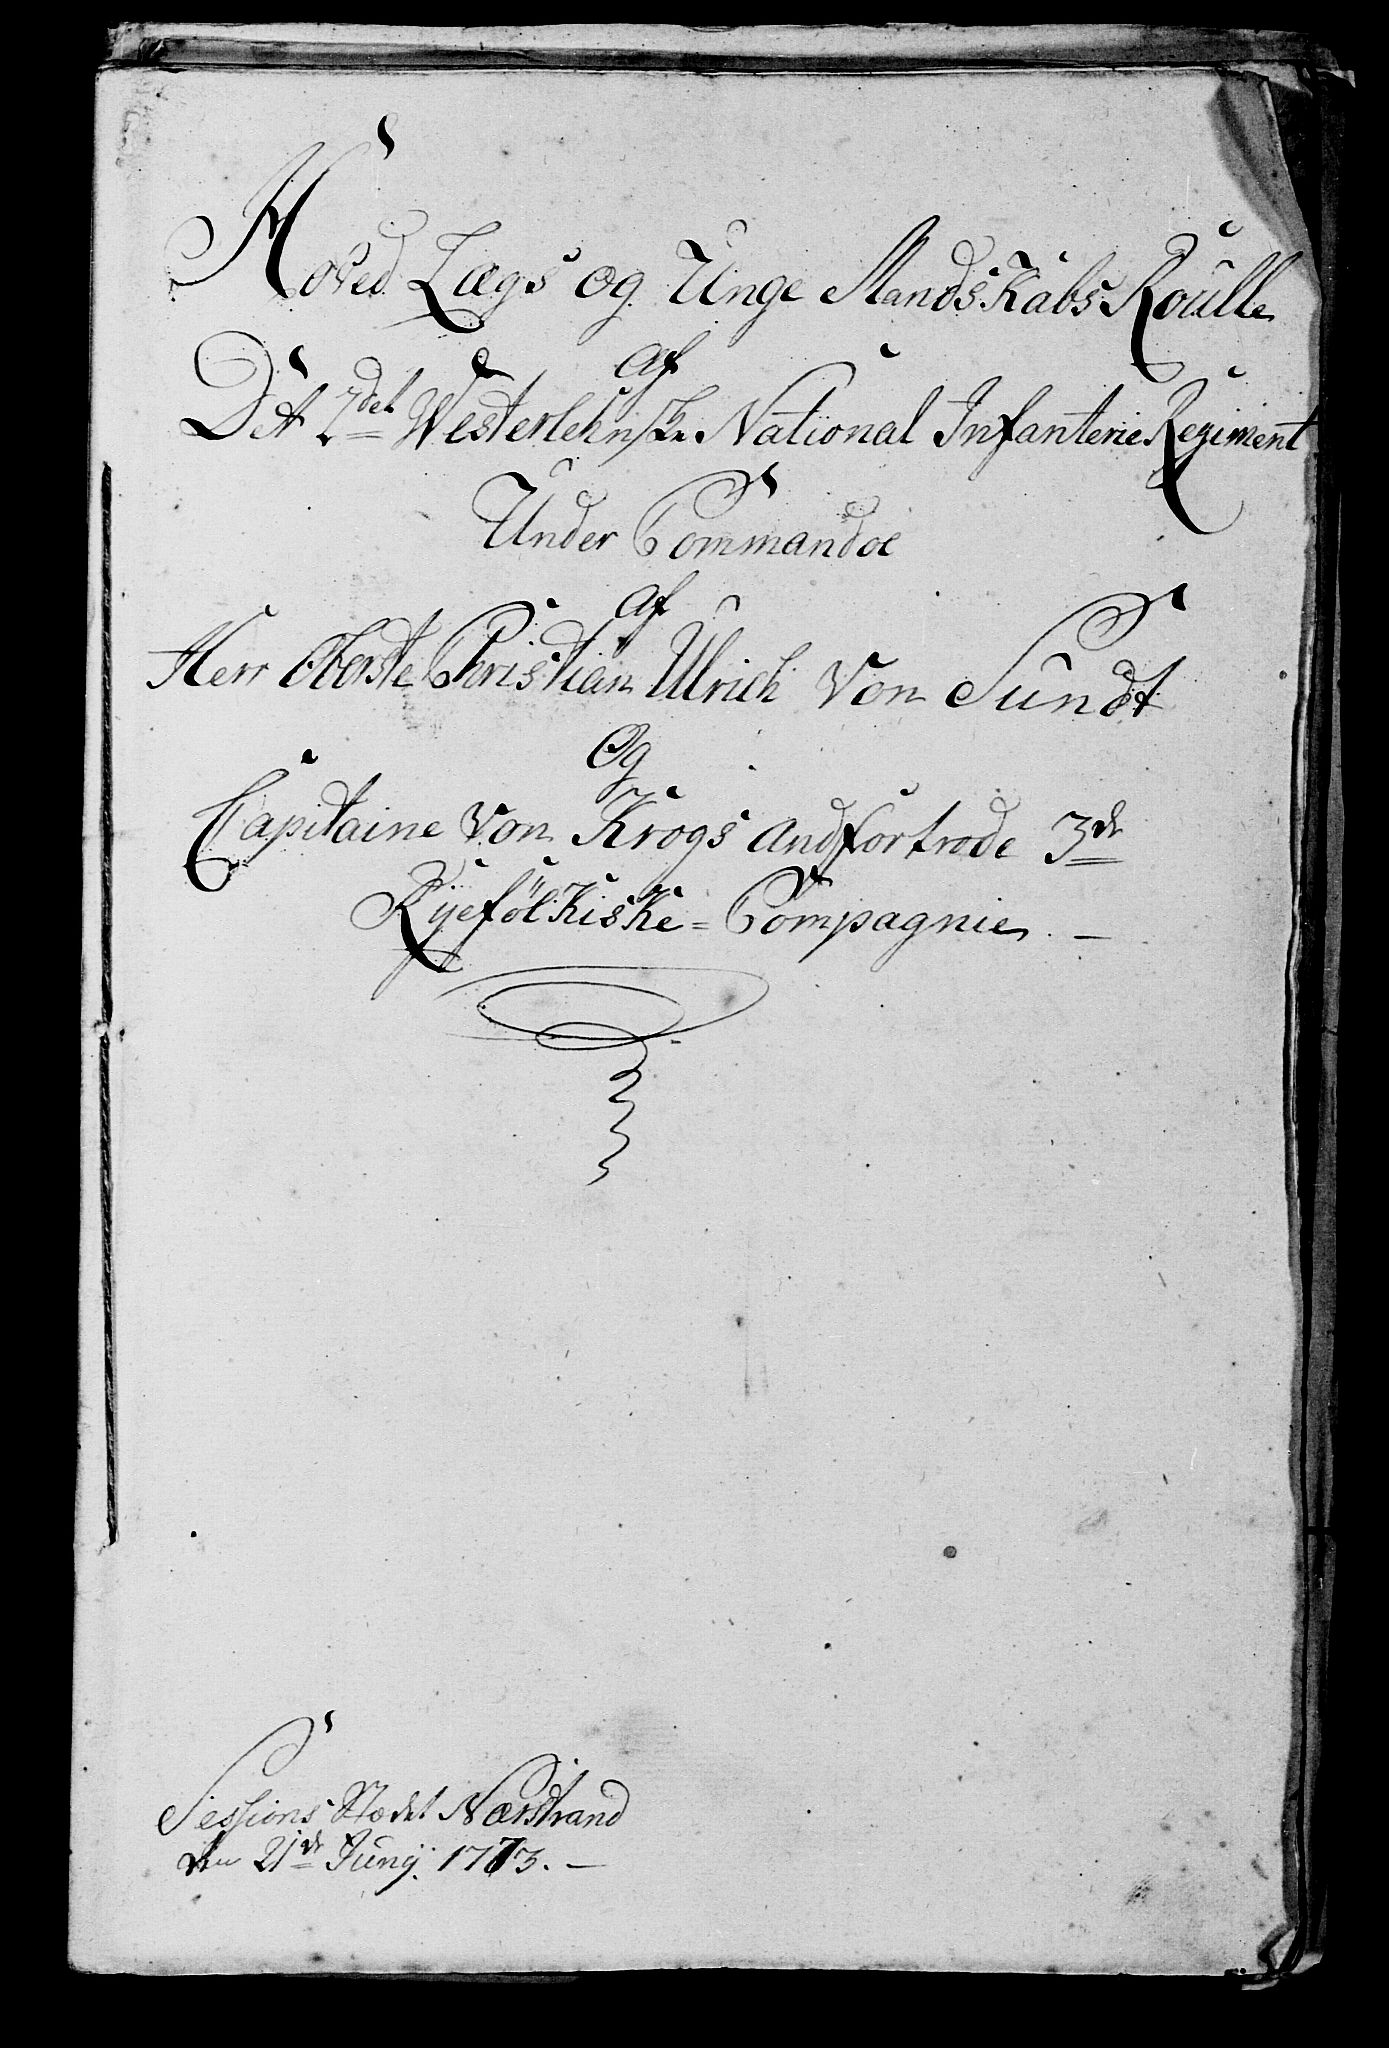 Hoved Lægs og Unge MandsKabs Roulle
Af
Det 2det Westerlehnske National Infanterie Regiment
Under Commandoe
Af
Herr Oberste Christian Ulrich Von Sundt
Og
Capitaine Von Krogs Andfortrode 3de
RyefölkisKe = Compagnie. —
Sessions Stædet Nærstrand
den 21de Junij. 1773. —